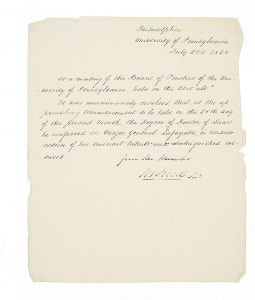 Philadelphia
University of Pennsylvania
July 2nd 1825
At a meeting of the Board of Trustees of the Uni-
versity of Pennsylvania, held on the
It was unanimously resolved that at the ap-
proaching Commencement to be held on the 28th day
of the present Month, the Degree of Doctor of Laws
be conferred on Major General Lafayette, in consid-
eration of his eminent talents and distinguished ser-
vices.
from the Minutes
Secy